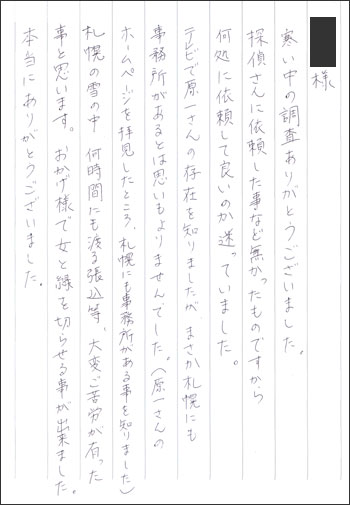 様
寒い中の調査ありがとうございました。
探偵さんに依頼した事など無かったものですから
何処に依頼して良いのか迷っていました。
テレビで原一さんの存在を知りましたが、まさか札幌にも
事務所があるとは思いもよりませんでした。(原一さんの
ホームページを拝見したところ、札幌にも事務所がある事を知りました)
札幌の雪の中 何時間にも渡る張込等、大変ご苦労が有った
事と思います。おかげ様で女と縁を切らせる事が出来ました。
本当にありがとうございました。